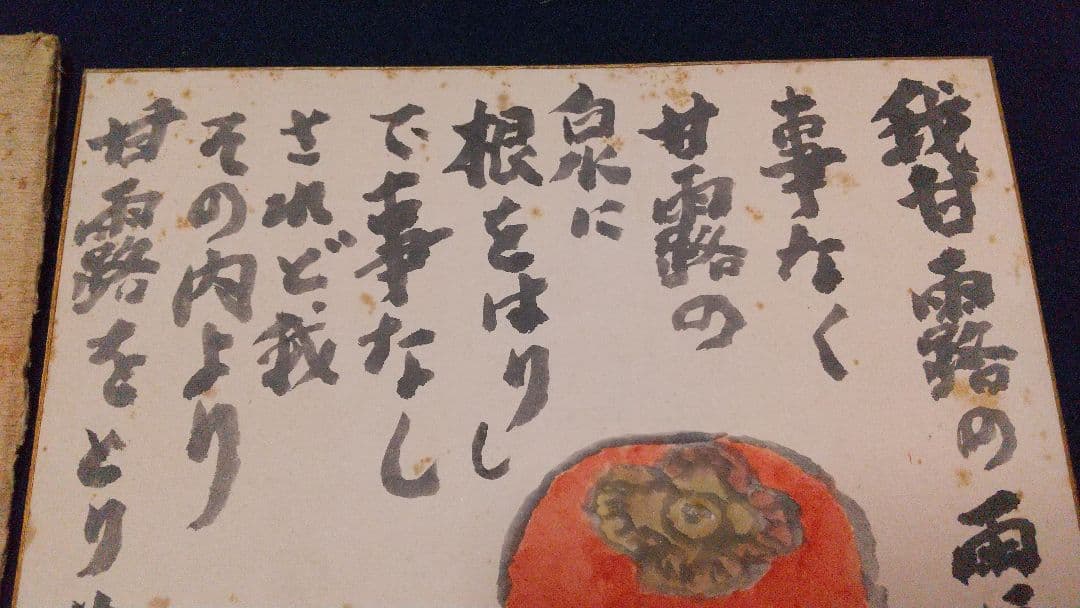 我甘露の雨
事なく
甘露の
泉に
根をはりし
で事なし
されど、我
その内より
甘露をとり